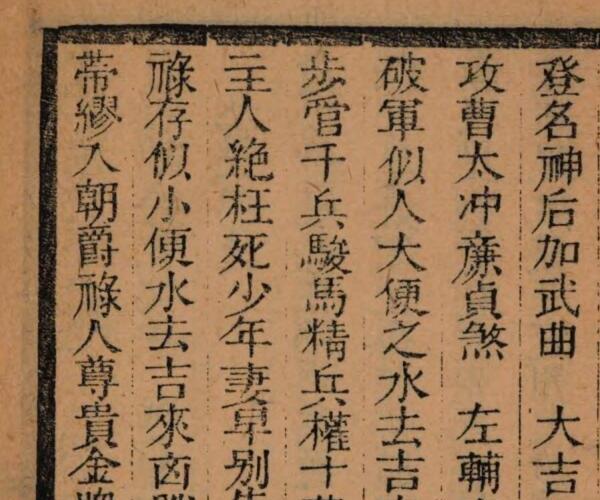 登名神后加武曲　大吉
攻曹太冲廉貞煞　左輔
破軍似人大便之水去吉
步管千兵駿馬精兵權十
二主人絶枉死少年妻早别
祿存似小便水去吉來凶
帶縿入朝爵祿人尊貴金